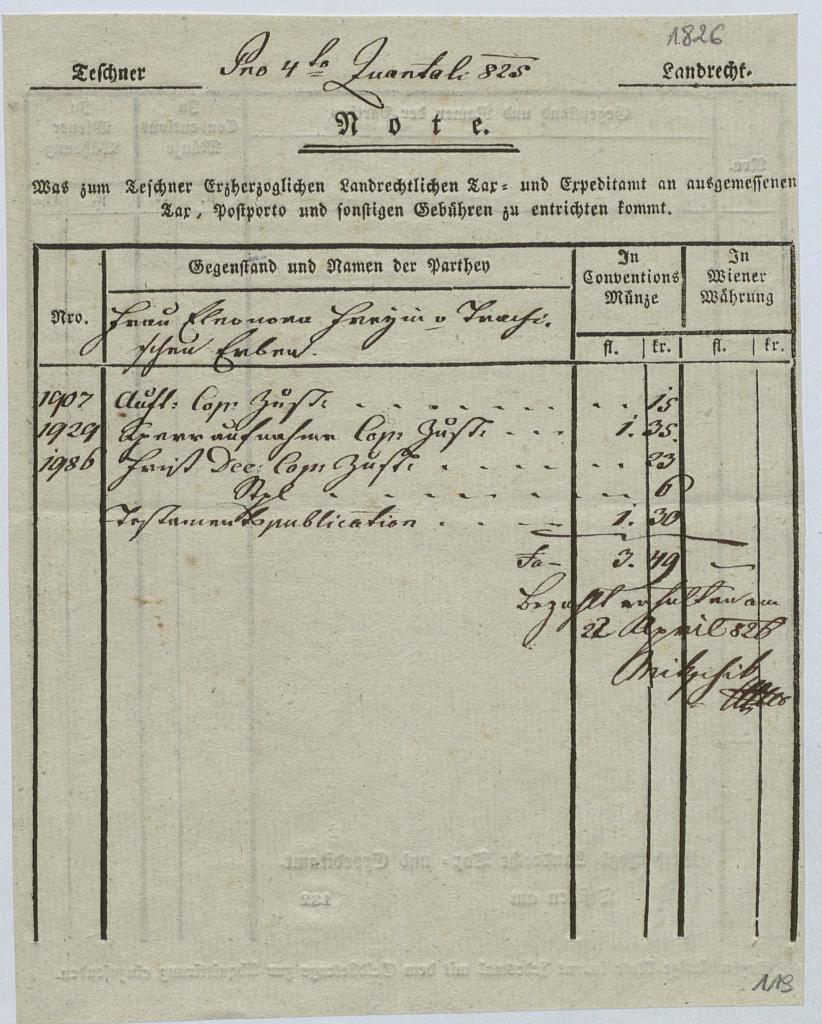 1826
Teschner Pro 4to Quartali 825 Landrecht.
Note.
Was zum Teschner Erzherzoglichen Landrechtlichen Tax- und Expeditamt an ausgemessenen
Tax, Postporto und sonstigen Gebühren zu entrichten kommt.
Nro.
Gegenstand und Namen der Parthey
In Conventions Münze
In Wiener Währung
fl. kr. fl. kr.
Frau Eleonora Freyin v Trachi-
schen Erben.
1907 Auft: Cop: Zust: 15
1929 Sperraufnahme Cop: Zust: 1. 35.
1986 Frist Dec: Cop: Zust: 23
Stpl 6
Testamentspublication 1. 30
Fa- 3. 49 —
Bezahlt erhalten am
22 April 826
119